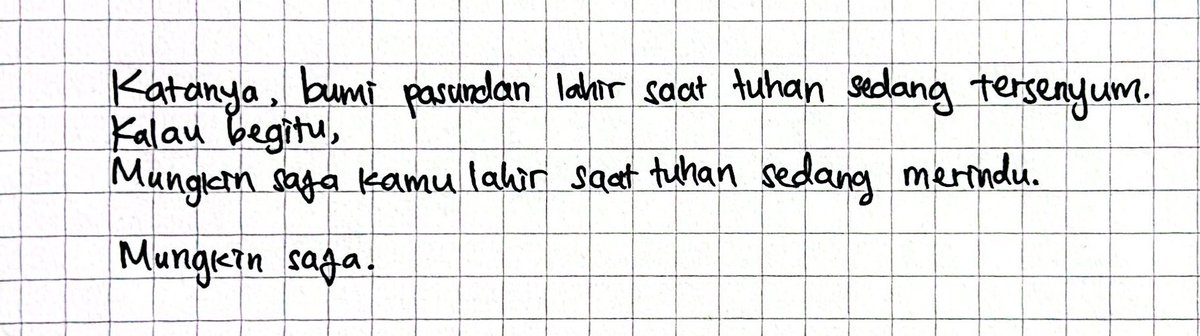 Katanya, bumi pasundan lahir saat tuhan sedang tersenyum.
Kalau begitu,
Mungkin saja kamu lahir saat tuhan sedang merindu.
Mungkin saja.